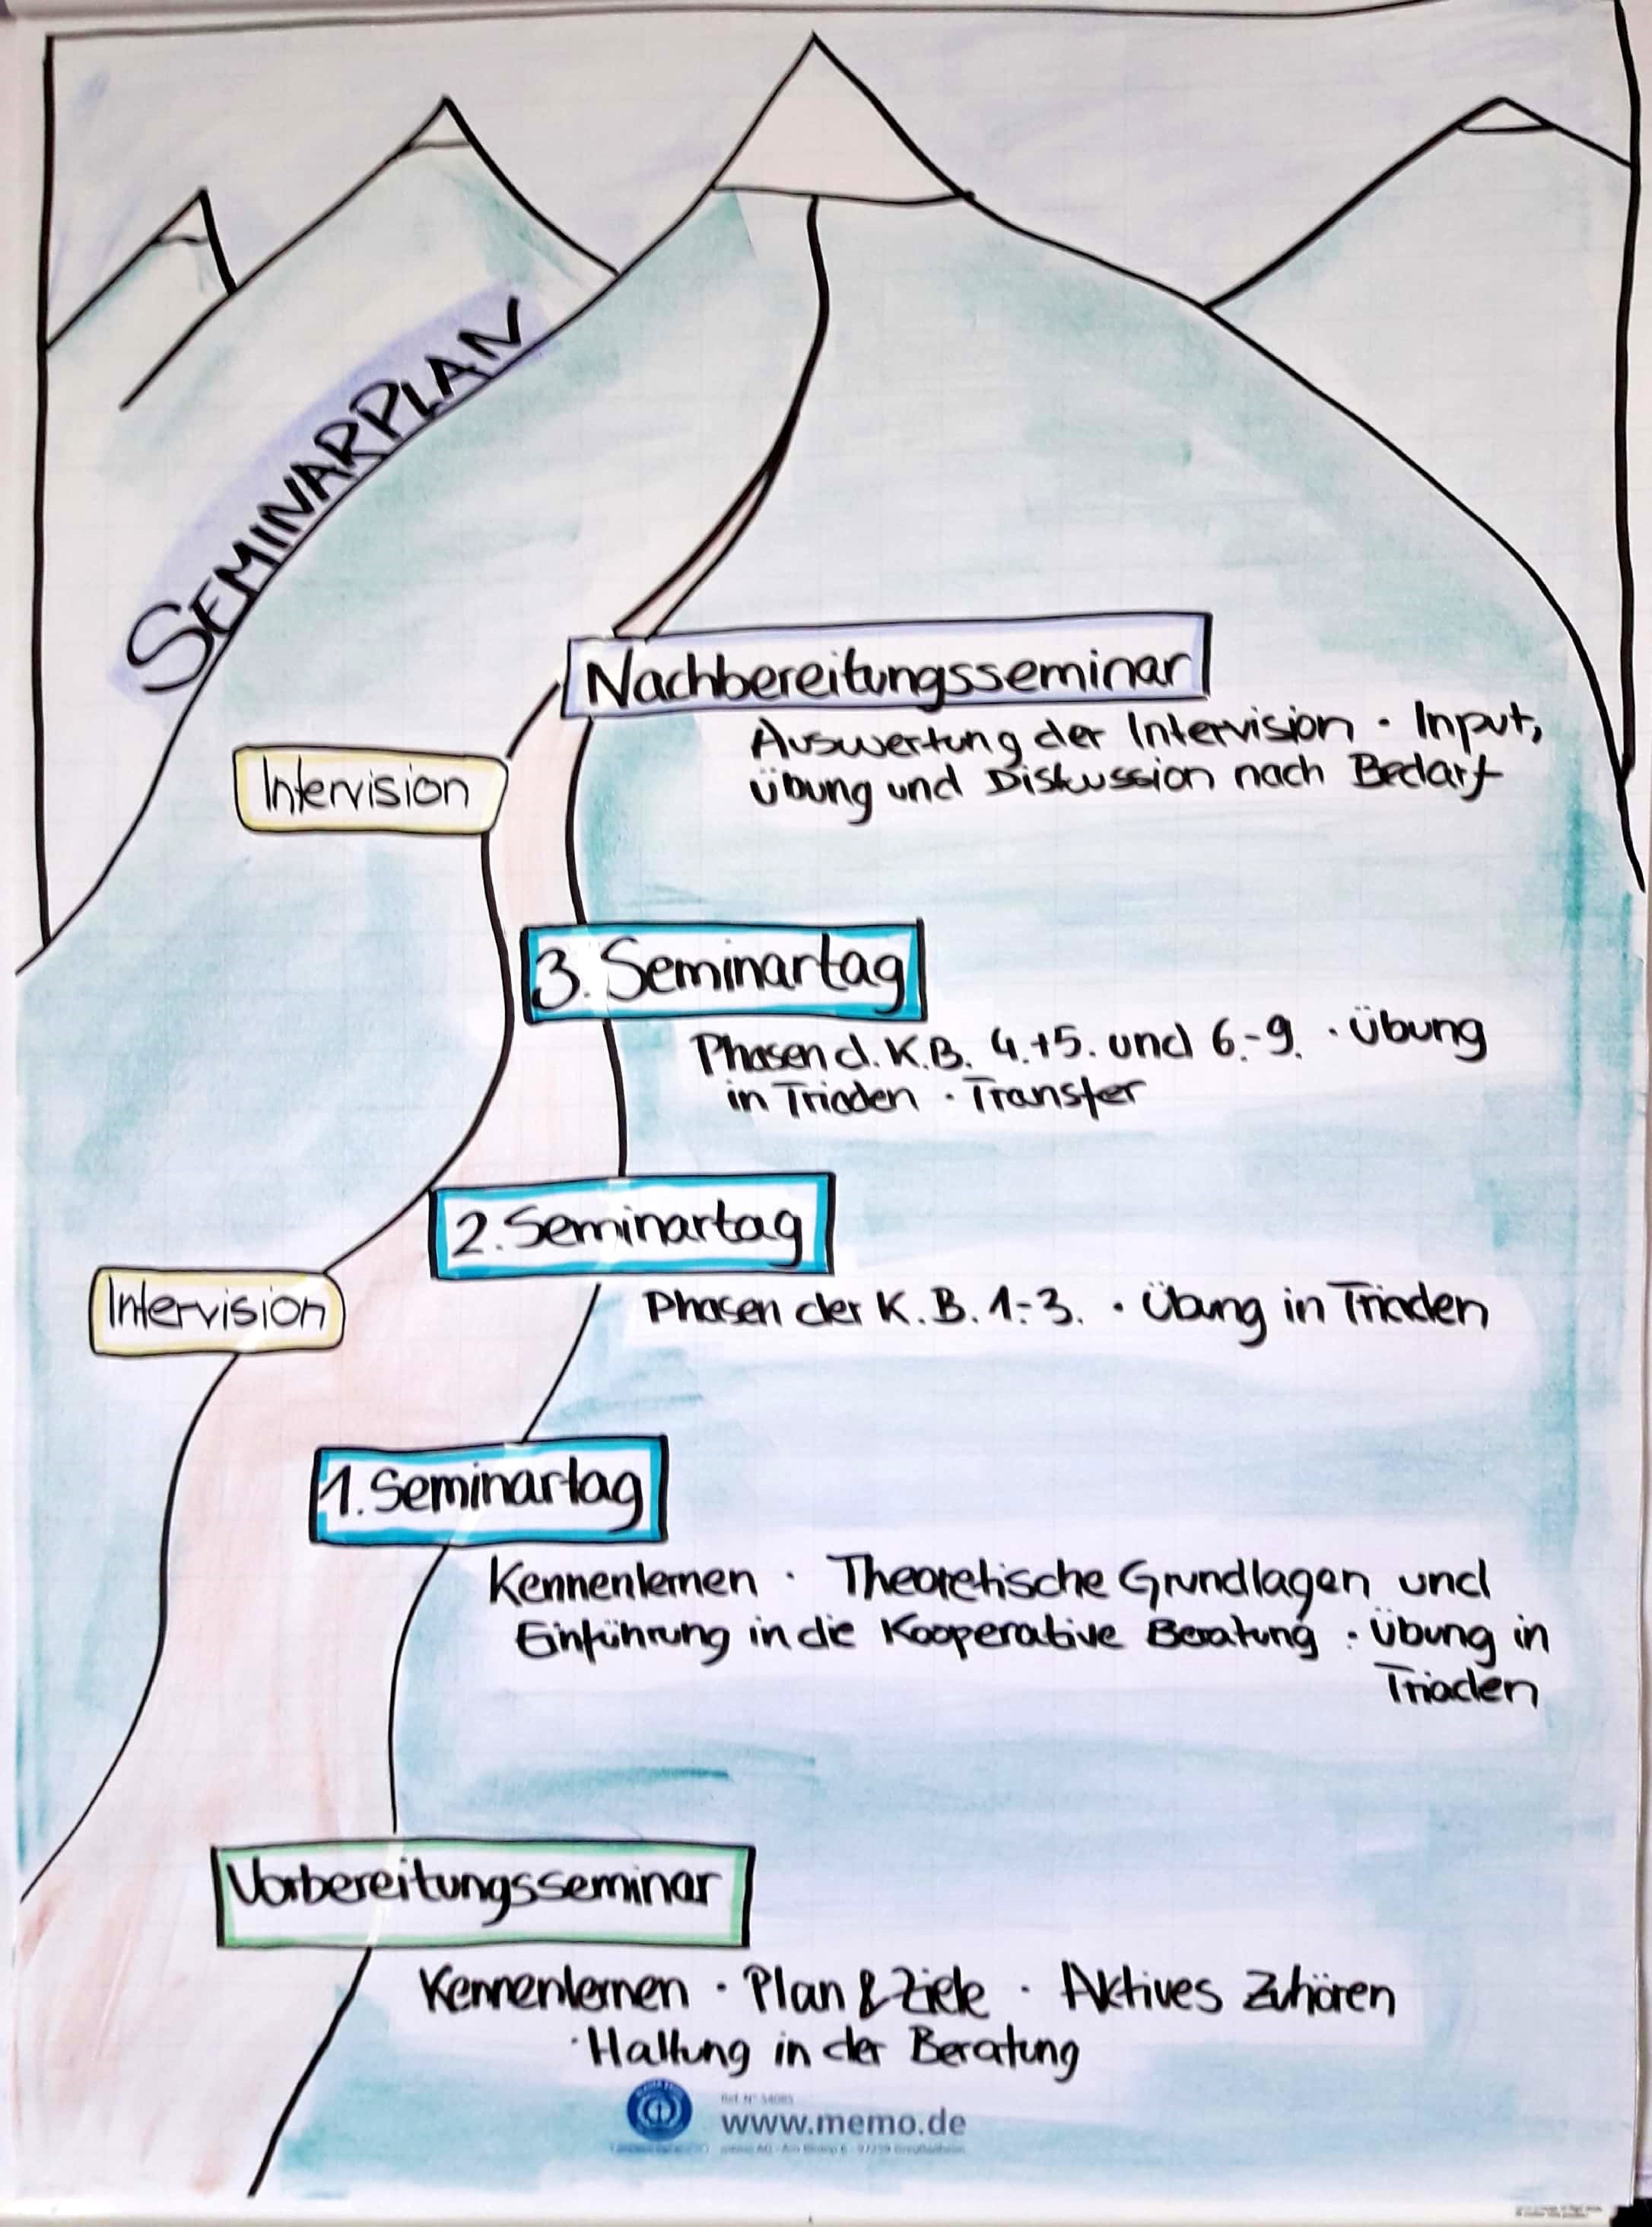 SEMINARPLAN
Nachbereitungsseminar
Auswertung der Intervision · Input,
Übung und Diskussion nach Bedarf
Intervision
3. Seminartag
Phasen d. K.B. 4.+5. und 6.-9. · Übung
in Triaden · Transfer
2. Seminartag
Phasen der K.B. 1.-3. · Übung in Triaden
Intervision
1. Seminartag
Kennenlernen · Theoretische Grundlagen und
Einführung in die Kooperative Beratung · Übung in
Triaden
Vorbereitungsseminar
Kennenlernen · Plan & Ziele · Aktives Zuhören
· Haltung in der Beratung
www.memo.de